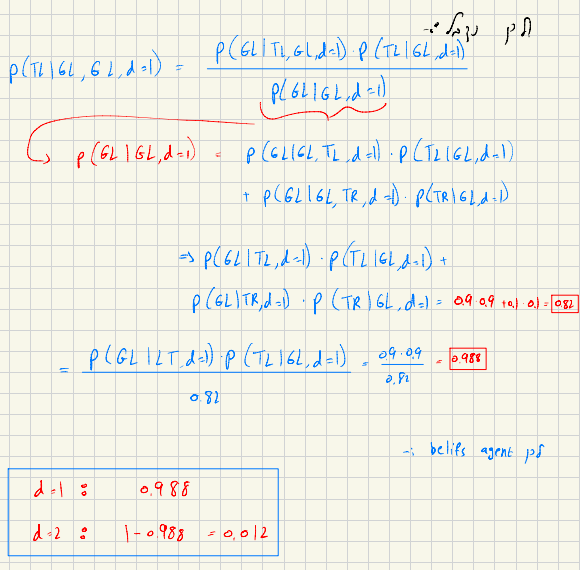 לכן נקבל :-
P(TL|GL, GL, d=1) = P(GL|TL, GL, d=1) · P(TL|GL, d=1) / P(GL|GL, d=1)
P(GL|GL, d=1) = P(GL|GL, TL, d=1) · P(TL|GL, d=1)
+ P(GL|GL, TR, d=1) · P(TR|GL, d=1)
=> P(GL|TL, d=1) · P(TL|GL, d=1) +
P(GL|TR, d=1) · P(TR|GL, d=1) = 0.9 · 0.9 + 0.1 · 0.1 = 0.82
= P(GL|LT, d=1) · P(TL|GL, d=1) / 0.82 = 0.9 · 0.9 / 0.82 = 0.988
-: belifs agent לכן
d=1 : 0.988
d=2 : 1 - 0.988 = 0.012